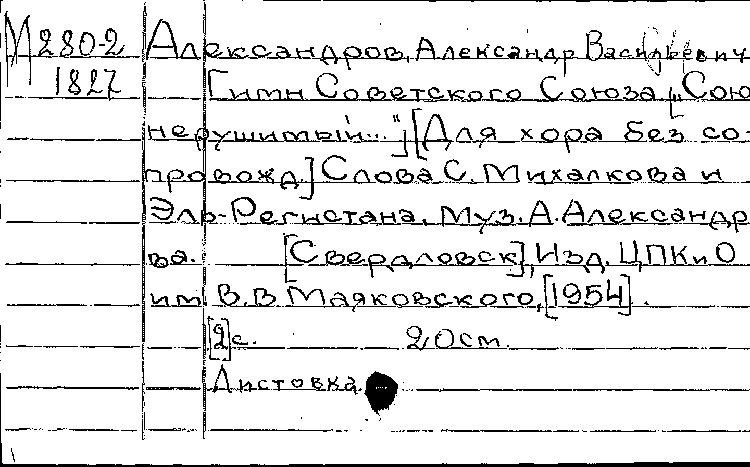 М 280-2 Александров, Александр Васильевич
1827 Гимн Советского Союза. ["Сою
нерушимый..."] [Для хора без со-
провожд.] Слова С. Михалкова и
Эль-Регистана. Муз. А. Александр
ва. [Свердловск], Изд. ЦПКиО
им. В.В. Маяковского, [1954].
[2]с. 20 см.
Листовка.